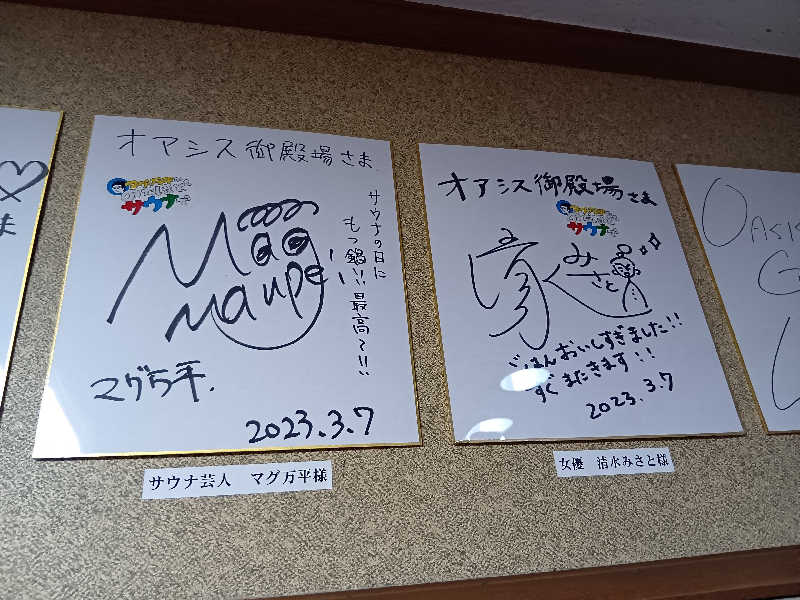 オアシス御殿場さま
サウナ
Mag
Maupe
サウナの日に
もつ鍋!!最高〜!!
マグ万平.
2023.3.7
サウナ芸人 マグ万平様
オアシス御殿場さま
サウナ
みさと
ごはんおいしすぎました!!
すぐまたきます!!
2023.3.7
女優 清水みさと様
OASIS
G